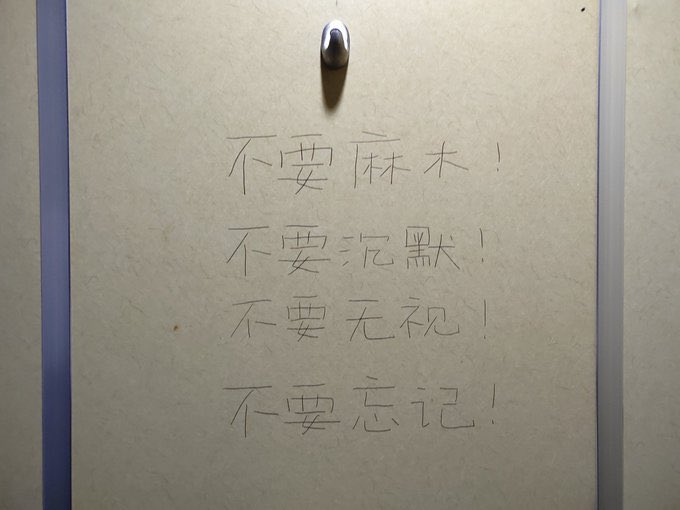 不要麻木！
不要沉默！
不要无视！
不要忘记！